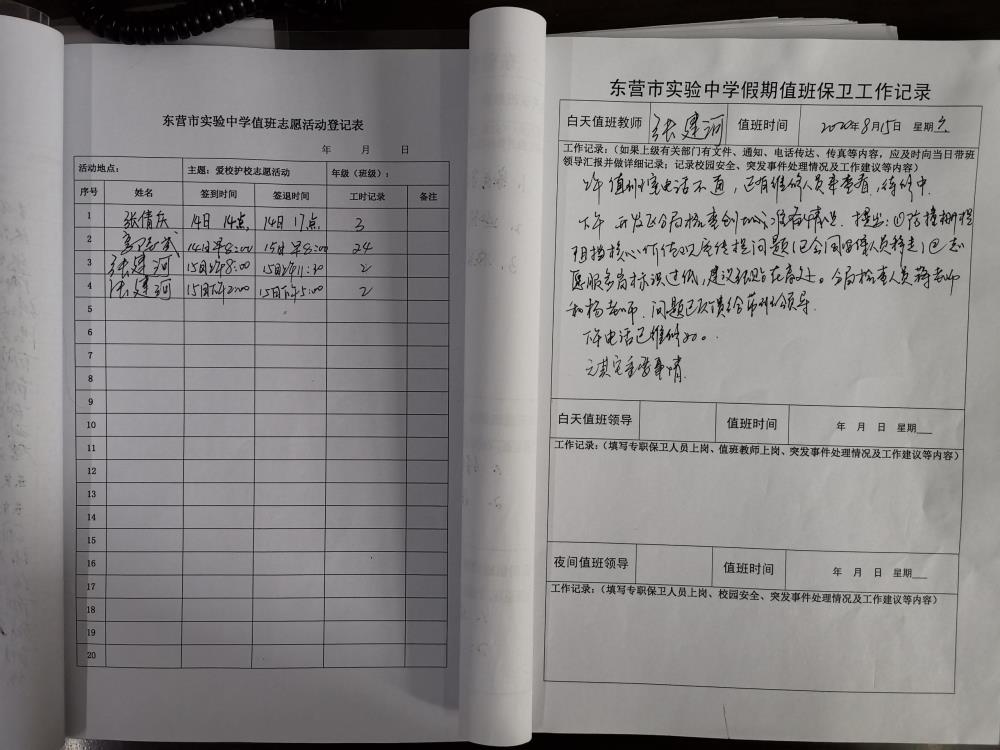 东营市实验中学值班志愿活动登记表
年 月 日
活动地点： 主题：爱校护校志愿活动 年级（班级）：
序号 姓名 签到时间 签退时间 工时记录 备注
1 张倩庆 14日 14点 14日 17点 3
2 14日早8:00 15日早8:00 24
3 张建河 15日上午8:00 15日上午11:30 2
4 张建河 15日下午2:00 15日下午5:00 2
5
6
7
8
9
10
11
12
13
14
15
16
17
18
19
20
东营市实验中学假期值班保卫工作记录
白天值班教师 张建河 值班时间 2020年8月15日 星期六
工作记录：（如果上级有关部门有文件、通知、电话传达、传真等内容，应及时向当日带班
领导汇报并做详细记录；记录校园安全、突发事件处理情况及工作建议等内容）
上午值班室电话不通，已有维修人员来查看，待修中.
下午 开发区分局检查创城 准备情况. 提出：(1)防撞栅栏
阻挡核心价值观宣传提问题(已会同 人员移走)(2)志
愿服务岗标识过低,建议张贴在高处。分局检查人员 老师
和杨老师. 问题已反馈给带班领导.
下午电话已维修好。
无其它重要事情.
白天值班领导 值班时间 年 月 日 星期
工作记录：（填写专职保卫人员上岗、值班教师上岗、突发事件处理情况及工作建议等内容）
夜间值班领导 值班时间 年 月 日 星期
工作记录：（填写专职保卫人员上岗、校园安全、突发事件处理情况及工作建议等内容）